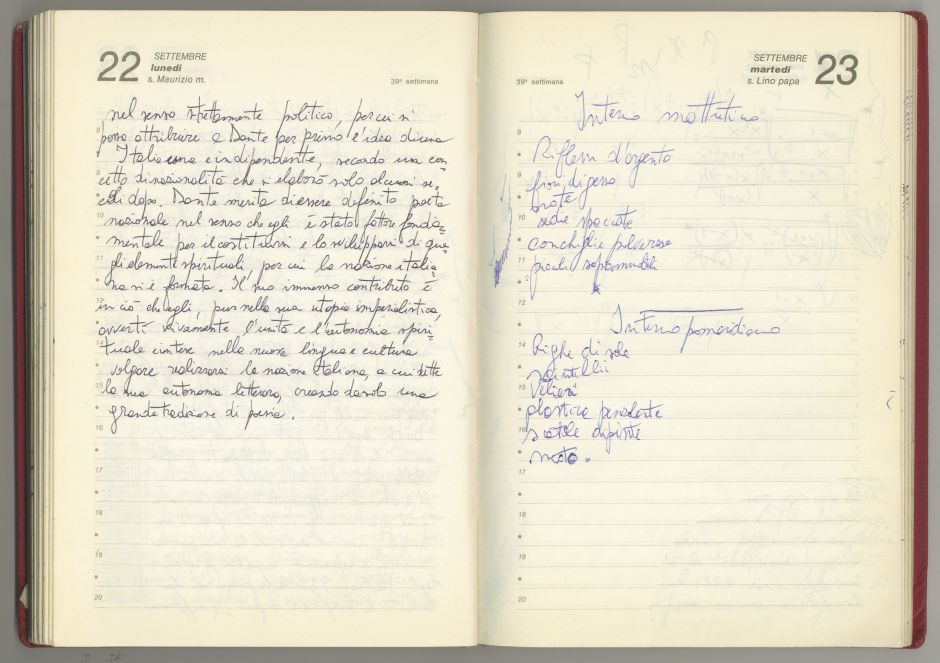 22
SETTEMBRE
lunedì
s. Maurizio m.
39ª settimana
nel senso strettamente politico, per cui si
possa attribuire a Dante per primo l'idea di una
Italia una e indipendente, secondo una con
cetto di nazionalità che si elaborò solo alcuni se-
coli dopo. Dante merita di essere definito poeta
nazionale nel senso che egli è stato fattore fonda-
mentale per il costituirsi e lo svilupparsi di que-
gli elementi spirituali, per cui la nazione italia-
na si è formata. Il suo immenso contributo è
in ciò che egli, pur nella sua utopia imperialistica,
avvertì vivamente l'unità e l'autonomia spiri-
tuale e intese nella nuova lingua e cultura
volgare realizzarsi la nazione italiana, a cui dette
la sua autonomia letteraria, creando da solo una
grande tradizione di poesia.
8
9
10
11
12
13
14
15
16
17
18
19
20
39ª settimana
SETTEMBRE
martedì
s. Lino papa
23
Interno mattutino
Riflessi d'argento
fiori di gesso
sedie spaiate
conchiglie polverose
piccoli soprammobili
Interno pomeridiano
Righe di sole
scintillii
Velieri
plastica pendente
scatole dipinte
vuoto.
8
9
10
11
12
13
14
15
16
17
18
19
20